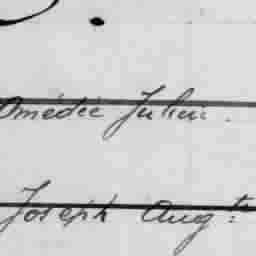 Omédée Julien.
Joseph Aug:te